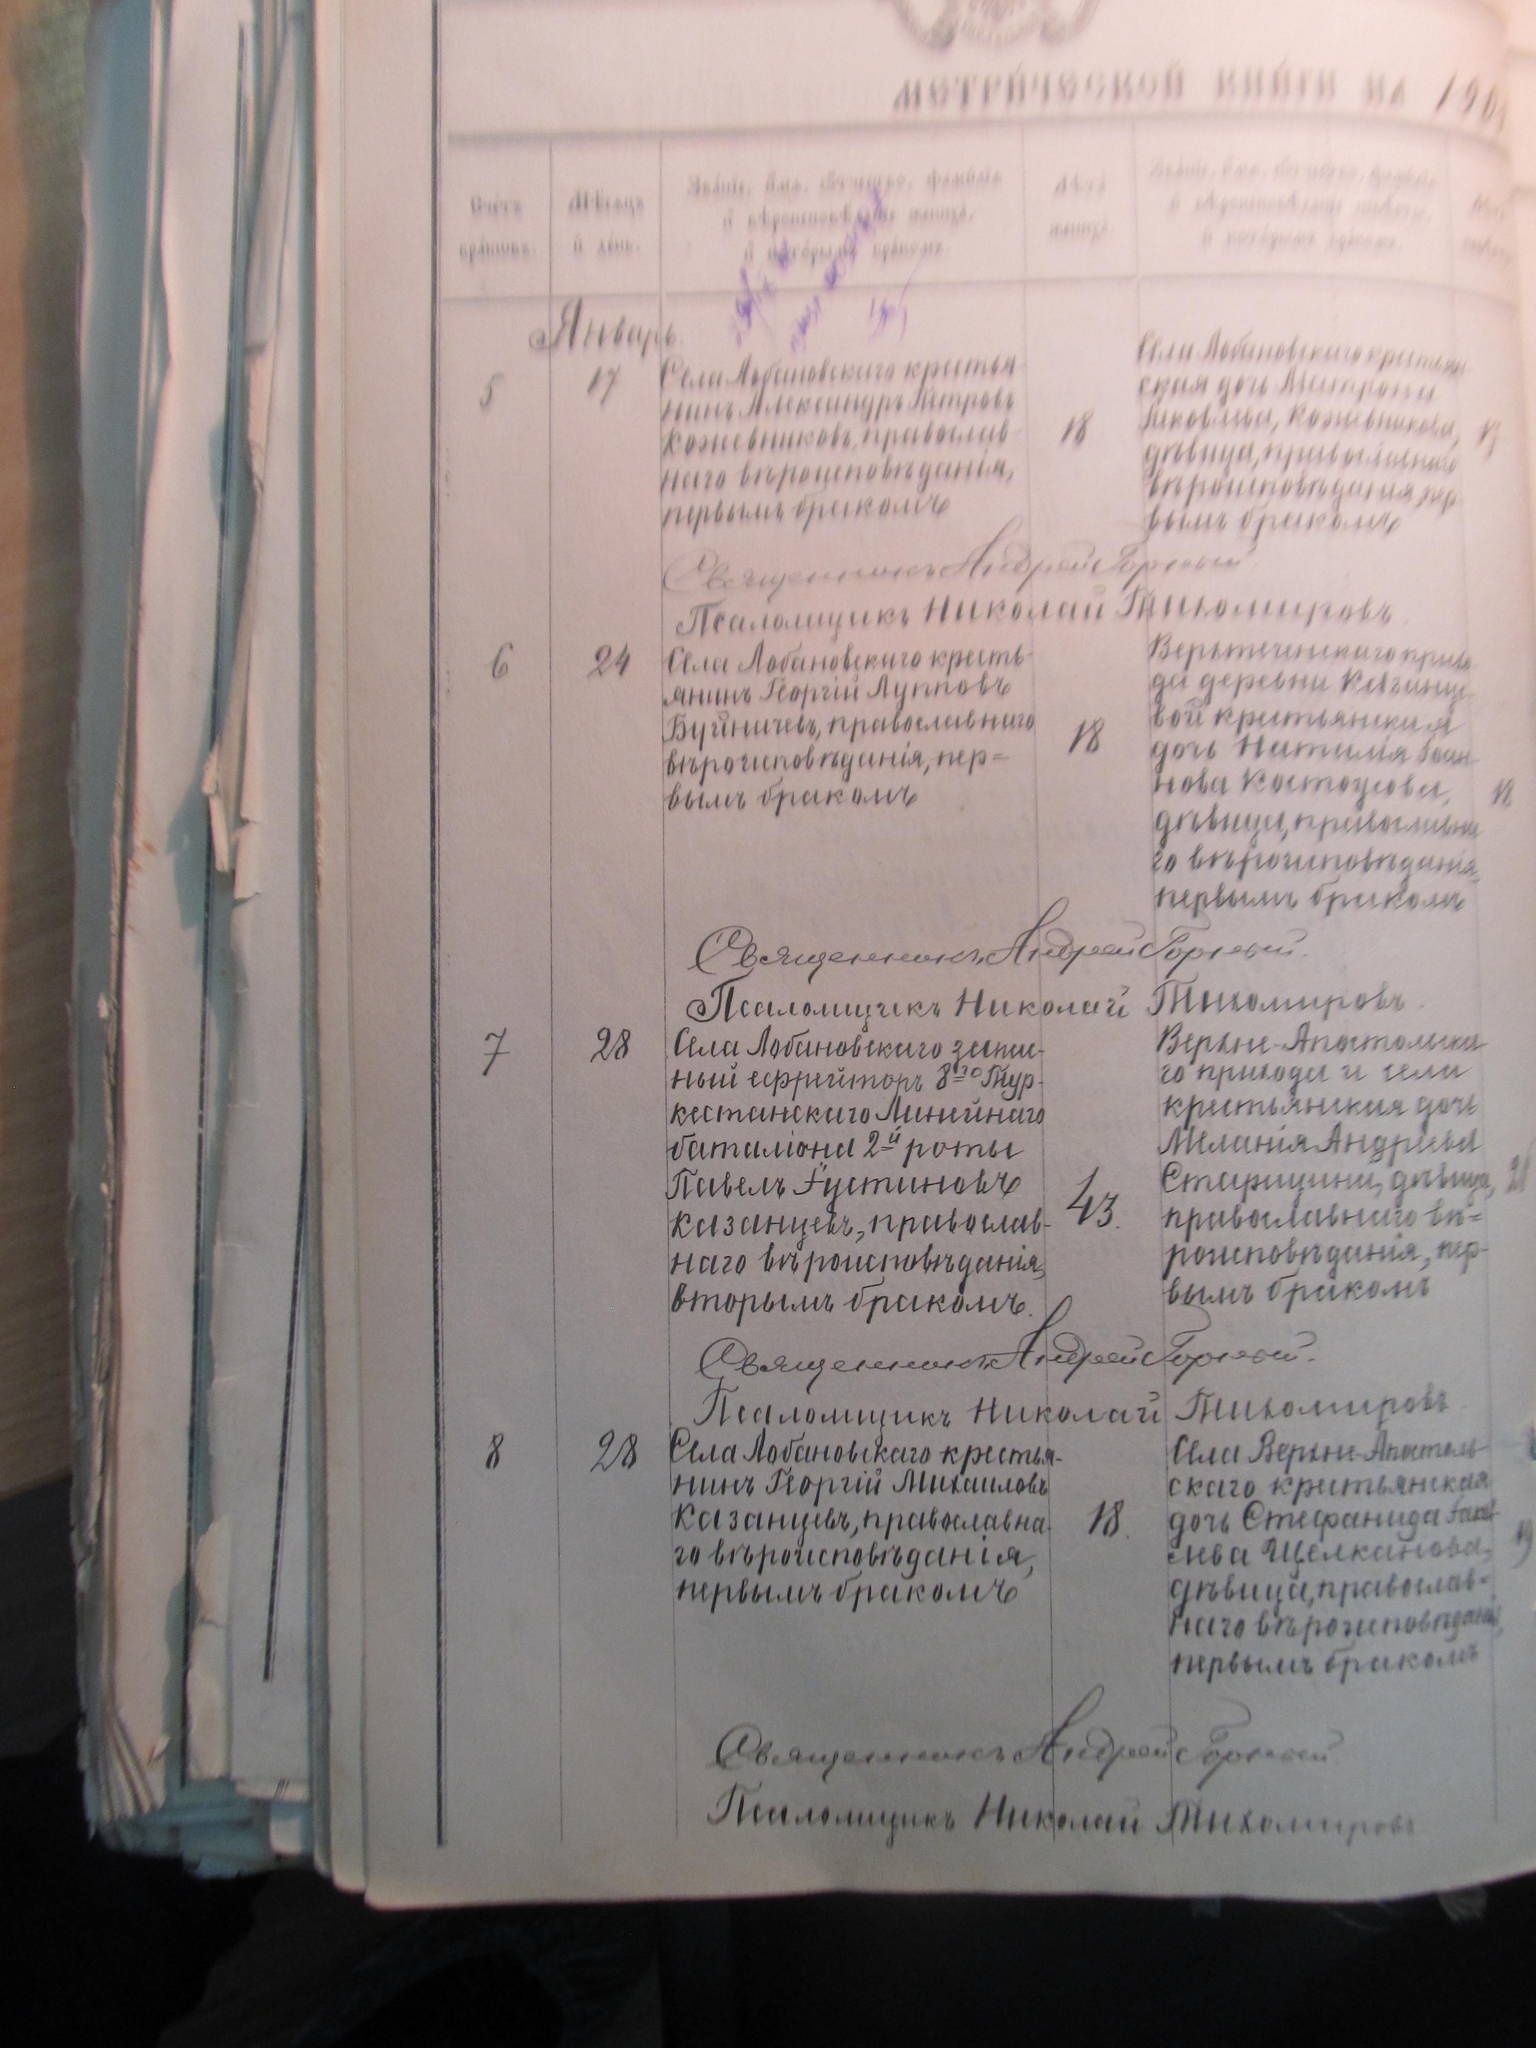 метрической книги на 190
Счетъ браковъ.
Мѣсяцъ и день.
Званіе, имя, отчество, фамилія
и вѣроисповѣданіе жениха,
и которымъ бракомъ.
Лѣта жениха.
Званіе, имя, отчество, фамилія
и вѣроисповѣданіе невѣсты,
и которымъ бракомъ.
Январь
5
17
Села Лобановскаго крестья
нинъ Александръ Петровъ
Кожевниковъ, православ-
наго вѣроисповѣданія,
первымъ бракомъ
18
Села Лобановскаго крестьян-
ская дочь
Яковлева, Кожевникова,
дѣвица, православнаго
вѣроисповѣданія, пер-
вымъ бракомъ
Священникъ Андрей Горный
Псаломщикъ Николай Тихомировъ
6
24
Села Лобановскаго кресть-
янинъ Георгій Лупповъ
Буйничевъ, православнаго
вѣроисповѣданія, пер=
вымъ бракомъ
18
Верхтеченскаго прихо-
да деревни
вой крестьянская
дочь Наталія Іоан-
нова Костоусова,
дѣвица, православна
го вѣроисповѣданія,
первымъ бракомъ
18
Священникъ Андрей Горный.
Псаломщикъ Николай Тихомировъ.
7
28
Села Лобановскаго запас-
ный ефрейторъ 8го Тур-
кестанскаго Линейнаго
баталіона 2й роты
Павелъ Іустиновъ
Казанцевъ, православ-
наго вѣроисповѣданія,
вторымъ бракомъ.
43.
Верхне-Апостольска-
го прихода и села
крестьянская дочь
Меланія Андреева
Старицина, дѣвица,
православнаго вѣ=
роисповѣданія, пер-
вымъ бракомъ
21
Священникъ Андрей Горный.
Псаломщикъ Николай Тихомировъ
8
28
Села Лобановскаго крестья-
нинъ Георгій Михаиловъ
Казанцевъ, православна-
го вѣроисповѣданія,
первымъ бракомъ
18.
Села Верхне-Апостоль-
скаго крестьянская
дочь Стефанида
Щелканова,
дѣвица, православ-
наго вѣроисповѣданія,
первымъ бракомъ
19
Священникъ Андрей Горный.
Псаломщикъ Николай Тихомировъ